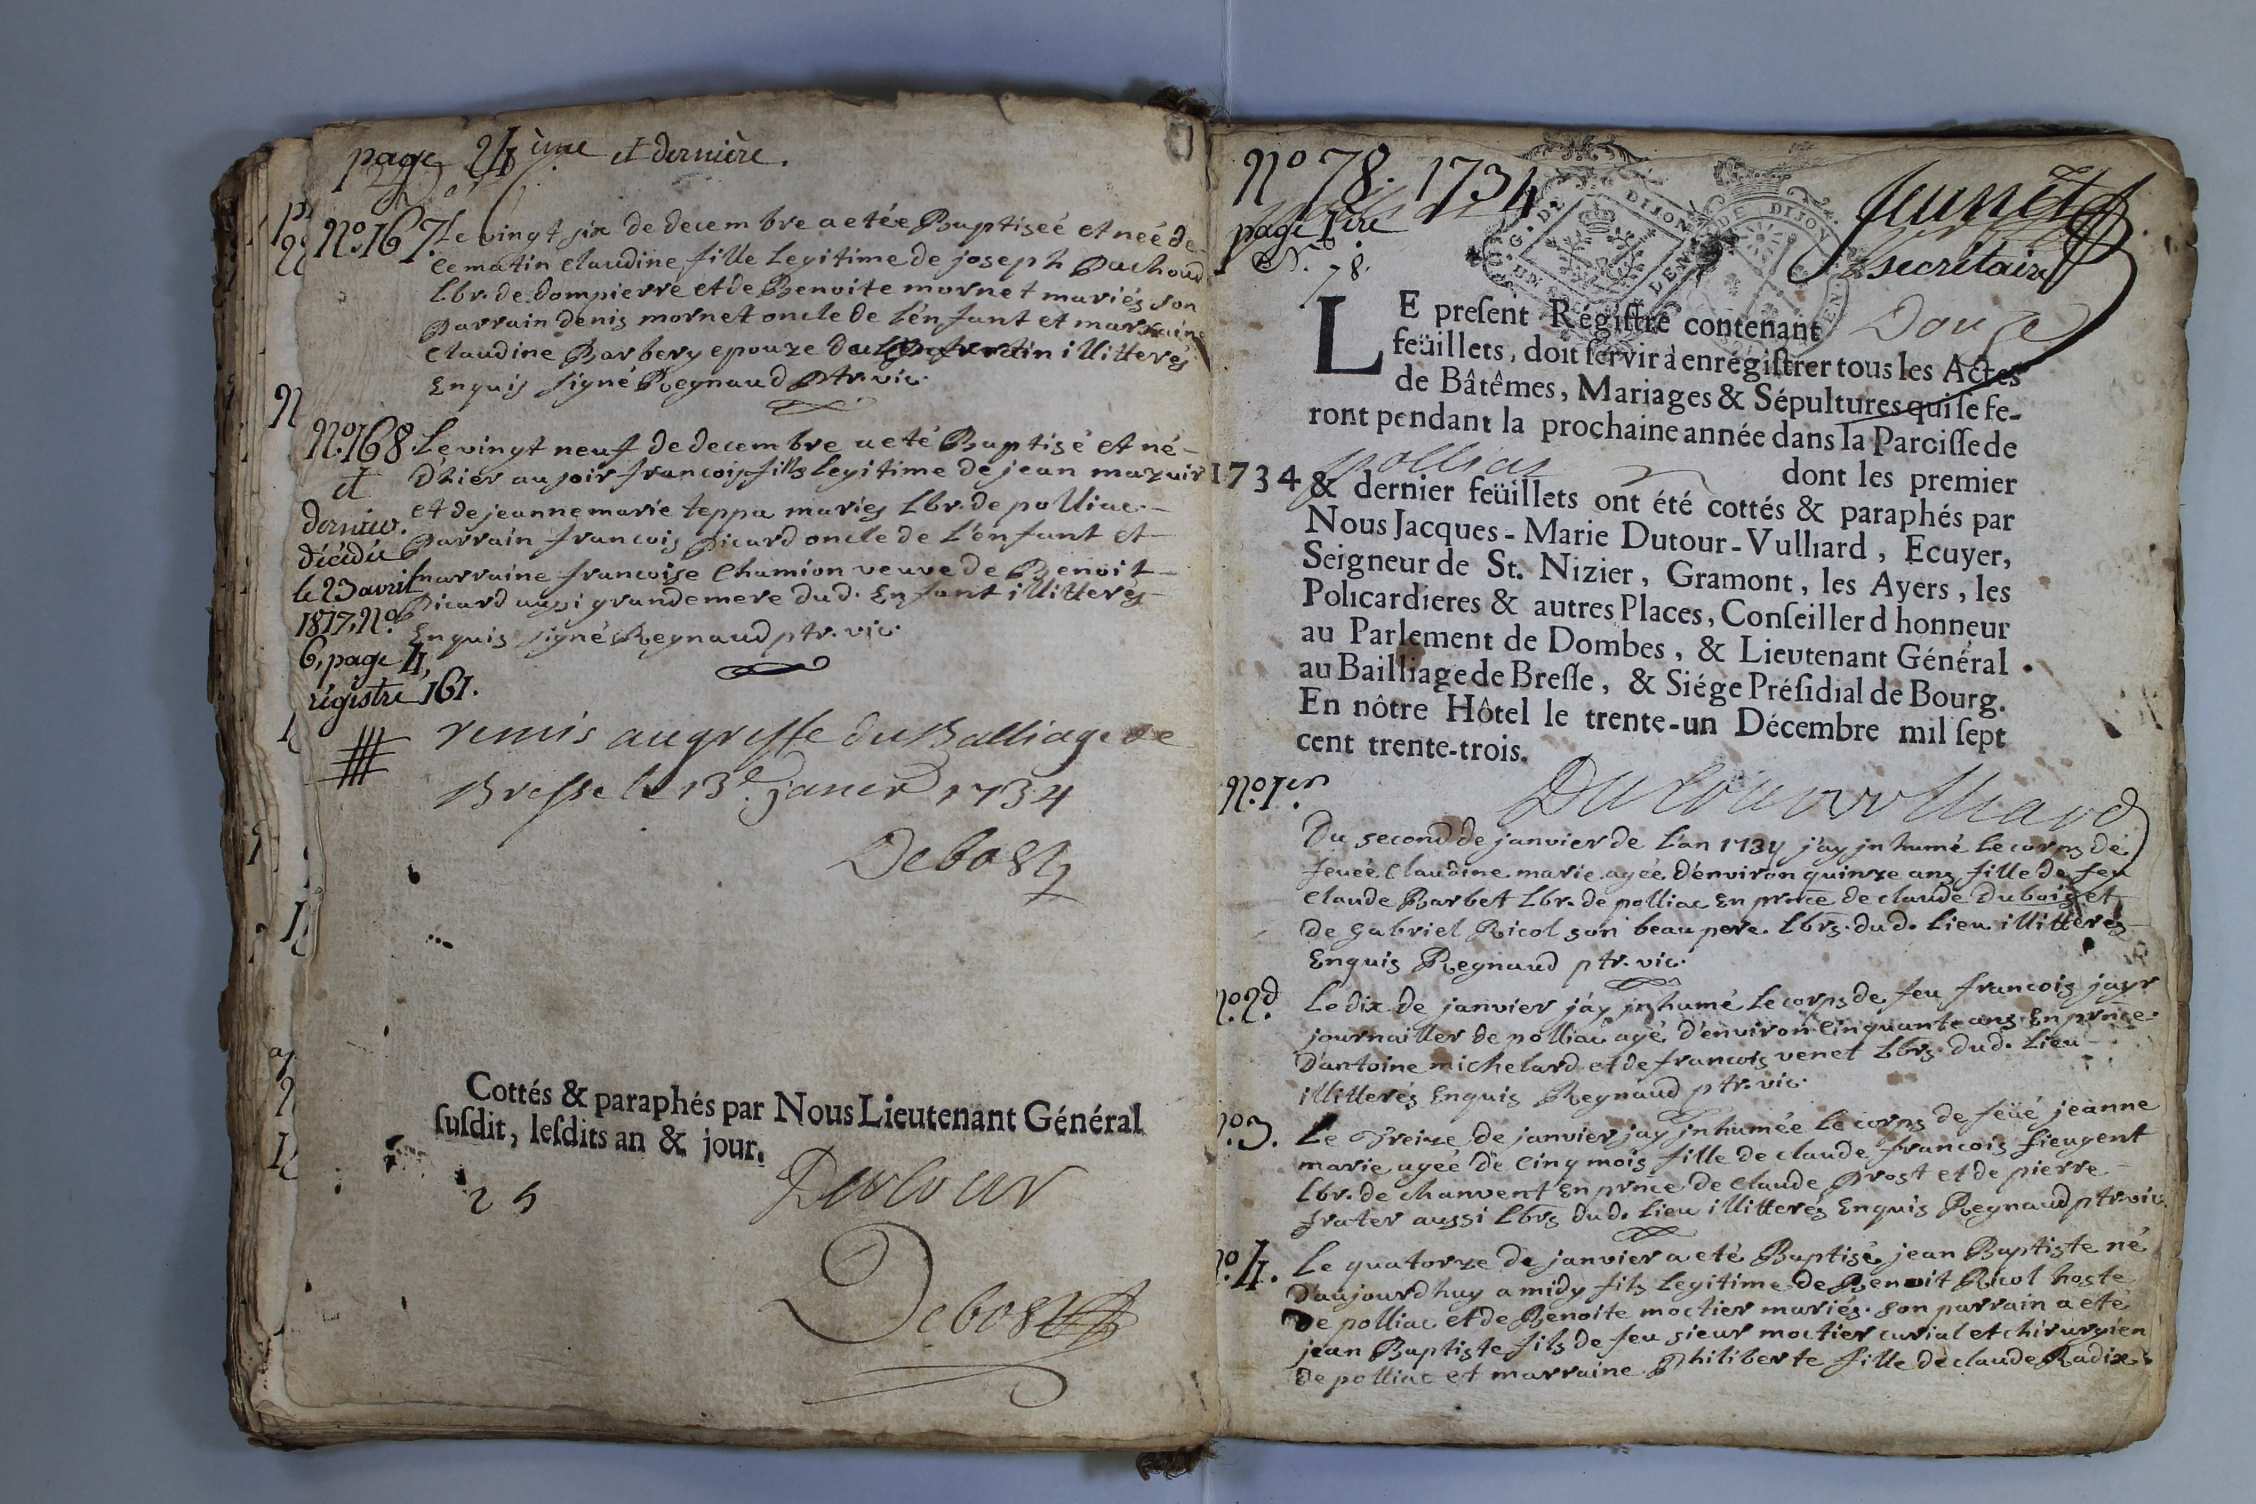 page 24ème et dernière.
No. 167. Le vingt six de decembre a etée Baptiseé et neé de
ce matin claudine fille legitime de joseph Pachoud
Lbr. de dompierre et de Benoite mornet mariés son
parrain denis mornet oncle de l'enfant et marraine
claudine Barbery epouze illitterés
Enquis signé Regnaud ptr. vic.
No. 168 Le vingt neuf de decembre a eté Baptisé et né
et
d'hier au soir francois fills legitime de jean mazuir
et de jeanne marie teppa mariés Lbr. de polliac.
dernier.
parrain francois picard oncle de L'enfant et
décédée
marraine francoise Chamion veuve de Benoit
le 23 avril
picard aussi grandemere dud. Enfant illitterés
1817, No.
Enquis signé Regnaud ptr. vic.
6, page 4,
régistre 161.
remis au greffe du Balliage de
Bresse le 13e janer 1734
Debost
Cottés & paraphés par Nous Lieutenant Général
susdit, lesdits an & jour.
Dutour
Debost
No 78. 1734.
page 1ère
No. 78.
secrétaire
G. DE DIJON
DE DIJON
LE present Régistre contenant Douze
feüillets, doit servir à enrégistrer tous les Actes
de Bâtêmes, Mariages & Sépultures qui se fe-
ront pendant la prochaine année dans la Paroisse de
polliat dont les premier
1734 & dernier feüillets ont été cottés & paraphés par
Nous Jacques-Marie Dutour-Vulliard, Ecuyer,
Seigneur de St. Nizier, Gramont, les Ayers, les
Policardieres & autres Places, Conseiller d honneur
au Parlement de Dombes, & Lieutenant Général
au Bailliage de Bresse, & Siége Présidial de Bourg.
En nôtre Hôtel le trente-un Décembre mil sept
cent trente-trois.
Dutour vulliard
No. 1er
Du second de janvier de L'an 1734 j'ay jnhumé Le corps de
feueé Claudine marie ageé d'environ quinze ans fille de feu
claude Barbet Lbr. de polliac en prnce de claude Dubois et
de gabriel Ricol son beau pere. Lbrs. dud. Lieu illitterés
Enquis Regnaud ptr. vic.
No. 2d. Le dix de janvier j'ay jnhumé Le corps de feu francois jayr
journailler de polliac agé d'environ cinquante ans En prnce
D'antoine michelard et de francois venet Lbrs. dud. Lieu
illitterés Enquis Regnaud ptr. vic.
No. 3. Le Treize de janvier jay jnhumée Le corps de feüé jeanne
marie ageé de cinq mois fille de claude francois fieugent
Lbr. de chanvent En prnce de claude prost et de pierre
frater aussi Lbrs dud. Lieu illitterés Enquis Regnaud ptr. vic.
No. 4. Le quatorze de janvier a eté Baptisé jean Baptiste né
D'aujourdhuy a midy fils legitime de Benoit Ricol hoste
de polliac et de Benoite moctier mariés. son parrain a eté
jean Baptiste fils de feu sieur moctier curial et chirurgien
de polliac et marraine philiberte fille de claude Radix